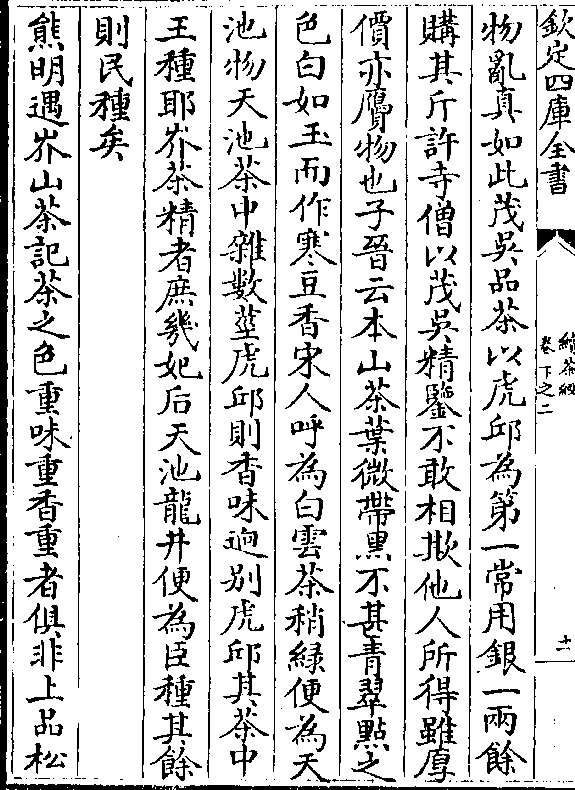 欽定四庫全書
續茶經
卷下之二
十一
物亂真如此茂吳品茶以虎邱為第一常用銀一兩餘
購其斤許寺僧以茂吳精鑒不敢相欺他人所得雖厚
價亦贗物也子晉云本山茶葉微帶黑不甚青翠點之
色白如玉而作寒豆香宋人呼為白雲茶稍綠便為天
池物天池茶中雜數莖虎邱則香味迥別虎邱其茶中
王種耶岕茶精者庶幾妃后天池龍井便為臣種其餘
則民種矣
熊明遇岕山茶記茶之色重味重香重者俱非上品松